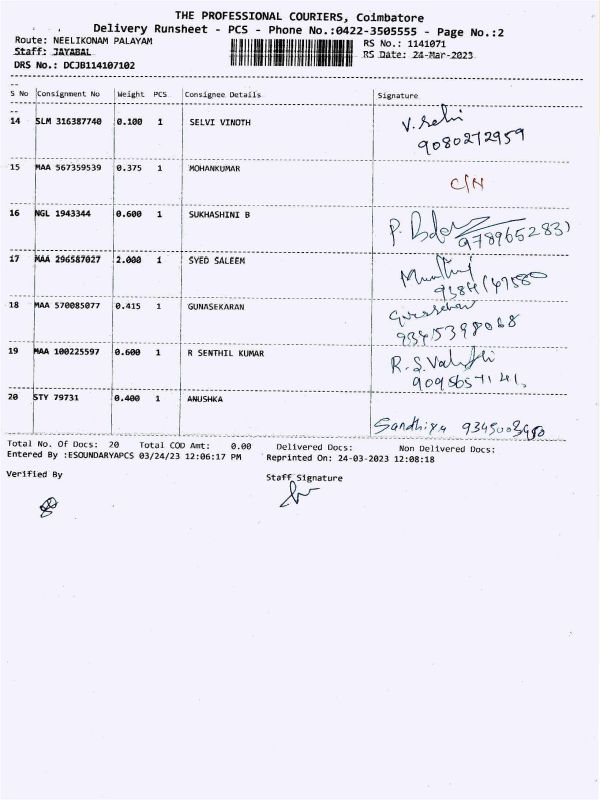 THE PROFESSIONAL COURIERS, Coimbatore
Delivery Runsheet - PCS - Phone No.:0422-3505555 - Page No.:2
Route: NEELIKONAM PALAYAM
RS No.: 1141071
Staff: JAYABAL
RS Date: 24-Mar-2023
DRS No.: DCJB114107102
S No Consignment No Weight PCS Consignee Details Signature
14 SLM 316387740 0.100 1 SELVI VINOTH V. Selvi
9080272959
15 MAA 567359539 0.375 1 MOHANKUMAR C/N
16 NGL 1943344 0.600 1 SUKHASHINI B P.
9789652831
17 MAA 296587027 2.000 1 SYED SALEEM
18 MAA 570085077 0.415 1 GUNASEKARAN Gunasekaran
9345398068
19 MAA 100225597 0.600 1 R SENTHIL KUMAR R.S.
20 STY 79731 0.400 1 ANUSHKA
Sandhiya
Total No. Of Docs: 20 Total COD Amt: 0.00 Delivered Docs: Non Delivered Docs:
Entered By :ESOUNDARYAPCS 03/24/23 12:06:17 PM Reprinted On: 24-03-2023 12:08:18
Verified By Staff Signature